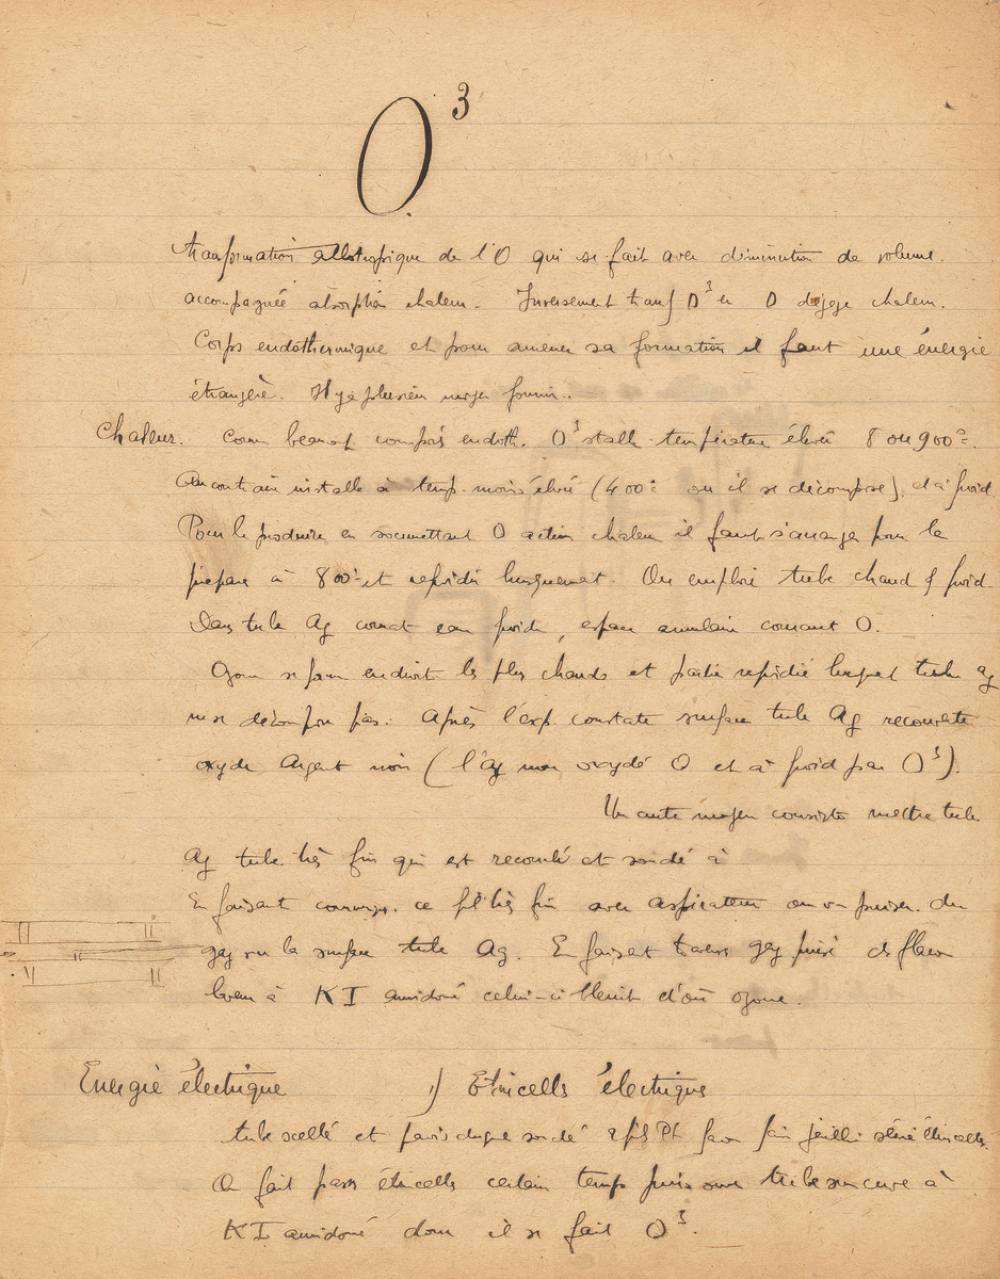 O³
transformation allotropique de l'O qui se fait avec diminution de volume.
accompagnée absorption chaleur. Inversement transf O³ en O dégage chaleur.
Corps endothermique et pour amener sa formation il faut une énergie
étrangère. Il y a plusieurs moyen fournir.
Chaleur. Comm beaucoup composés endoth. O³ stable température élevée 8 ou 900°.
Au contraire instable à temp. moins élevé (400° où il se décompose), et à froid.
Pour le produire en soumettant O action chaleur il faut s'arranger pour le
préparer à 800° et refroidir brusquement. On emploie tube chaud & froid.
Dans tube Ag courant eau froide, espace annulaire courant O.
Ozone se forme endroit les plus chauds et partie refroidie tube Ag
ne se décompose pas. Après l'exp. constate surface tube Ag recouverte
oxyde Argent noir (l'Ag non oxydé O et à froid par O³).
Un autre moyen consiste mettre tube
Ag tube très fin qui est recourbé et soudé à
En faisant ce fil très fin avec aspirateur on va puiser du
gaz sur la surface tube Ag. En faisant gaz puisé ds flacon
à KI amidoné celui-ci bleuit d'où ozone.
Energie électrique 1) Etincelles électriques
tube scellé et soudé 2 fils Pt faire jaillir série étincelles.
On fait passer étincelles certain temps puis ouvre tube sur cuve à
KI amidoné donc il se fait O³.